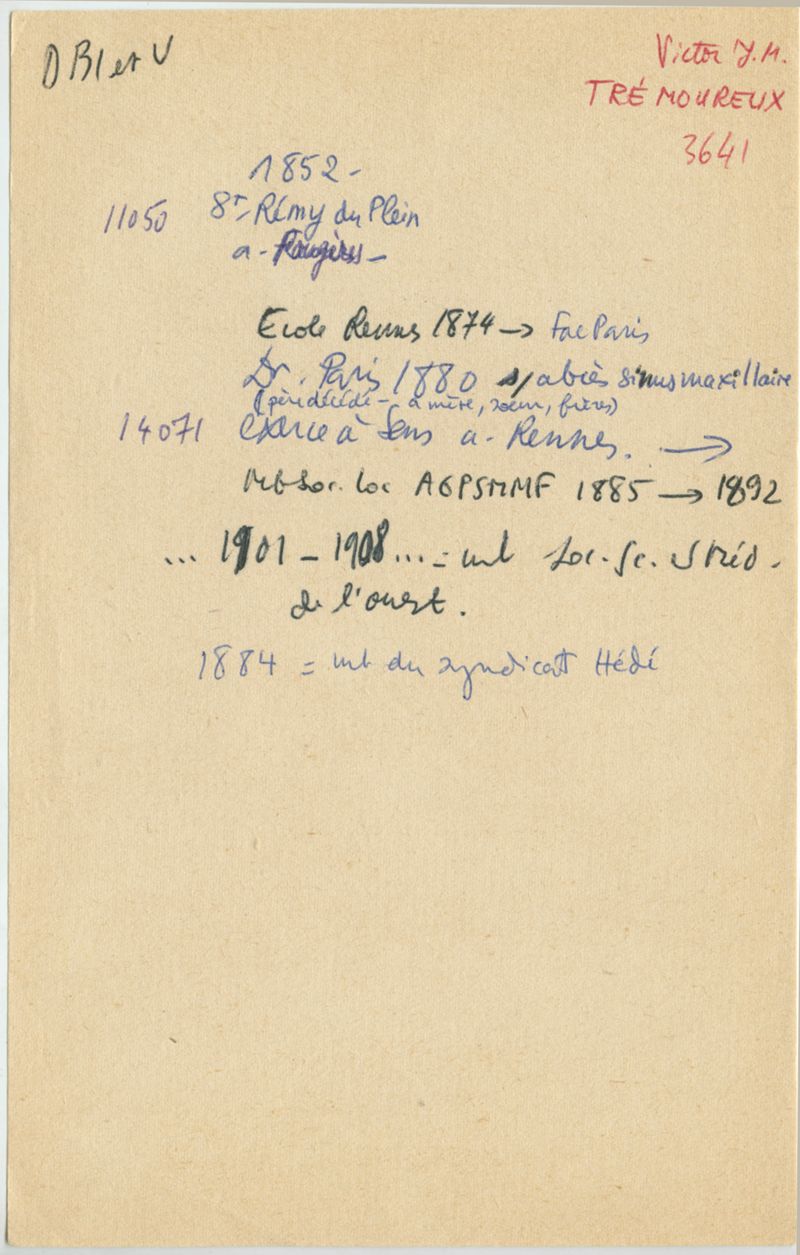 D BI et V
Victor J.M.
TRÉMOUREUX
3641
1852 -
11050 St-Rémy du Plein
a - Fougères -
Ecole Rennes 1874 → Fac Paris
Dr. Paris 1880 s/ abcès sinus maxillaire
(père décédé - a mère, soeur, frères)
14071 exerce à Sens a. Rennes. →
Mb Soc. loc AGPSMMF 1885 → 1892
... 1901 - 1908 ... = mb Soc. Sc. et Méd.
de l'ouest.
1884 = mb du syndicat Hédé